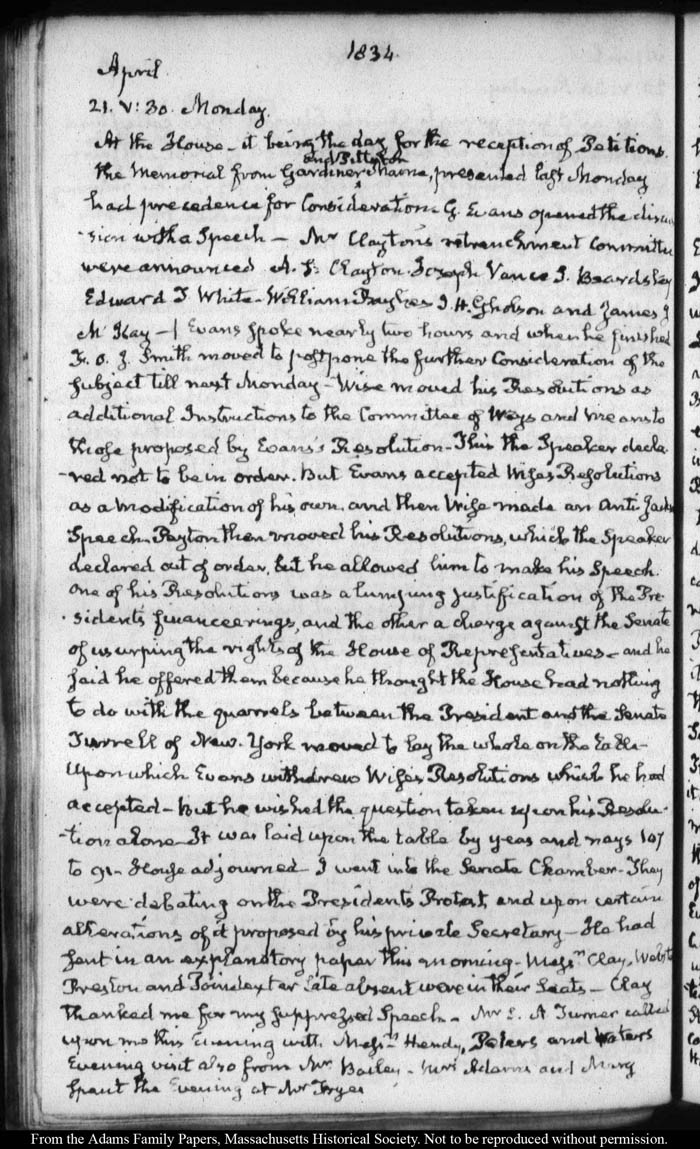 1834.
April.
21. V: 30. Monday.
At the House – it being the day for the reception of Petitions.
and Pittston
the Memorial from Gardiner Maine, presented last Monday
had precedence for Consideration G. Evans opened the discus
-sion with a Speech – Mr Clayton's retrenchment Committee
were announced A. S. Clayton. Joseph Vance S. Beardsley
Edward D White – William J. H. Gholson and James J
McKay – Evans spoke nearly two hours and when he finished
F. O. J. Smith moved to postpone the further Consideration of the
subject till next Monday – Wise moved his Resolutions as
additional Instructions to the Committee of Ways and Means to
those proposed by Evans's Resolution – This the Speaker decla-
-red not to be in order. But Evans accepted Wise's Resolutions
as a modification of his own, and then Wise made an Anti Jackson
Speech – Peyton then moved his Resolutions, which the Speaker
declared out of order, but he allowed him to make his Speech.
One of his Resolutions was a lumping justification of the Pre-
-sidents financeerings, and the other a charge against the Senate
of usurping the rights of the House of Representatives – and he
said he offered them because he thought the House had nothing
to do with the quarrels between the President and the Senate
Turrell of New-York moved to lay the whole on the table –
Upon which Evans withdrew Wise's Resolutions which he had
accepted – but he wished the question taken upon his Resolu-
-tion alone – It was laid upon the table by yeas and nays 107
to 91 – House adjourned – I went into the Senate Chamber – They
were debating on the Presidents Protest, and upon certain
alterations of it proposed by his private Secretary – He had
sent in an explanatory paper this morning – Messrs Clay, Webster
Preston and Poindexter late absent were in their Seats – Clay
thanked me for my suppressed Speech – Mr E. A Turner called
upon me this Evening with Messrs Hendy, Peters and Waters
Evening visit also from Mr Bailey – Mrs Adams and Mary
spent the Evening at Mr Frye's
From the Adams Family Papers, Massachusetts Historical Society. Not to be reproduced without permission.